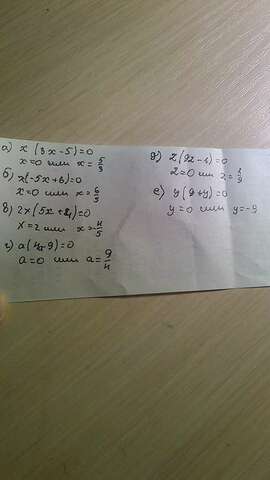 а) x (3x-5)=0
x=0 или x= 5/3
б) x(-5x+6)=0
x=0 или x= 6/5
в) 2x(5x+4)=0
x=2 или x=-4/5
г) a(4-9)=0
a=0 или a= 9/4
д) z(9z-1)=0
z=0 или z= 1/9
е) y(9+y)=0
y=0 или y=-9